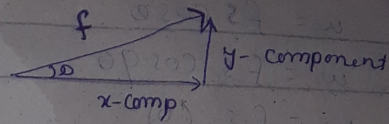 f
y- component
θ
x-comp